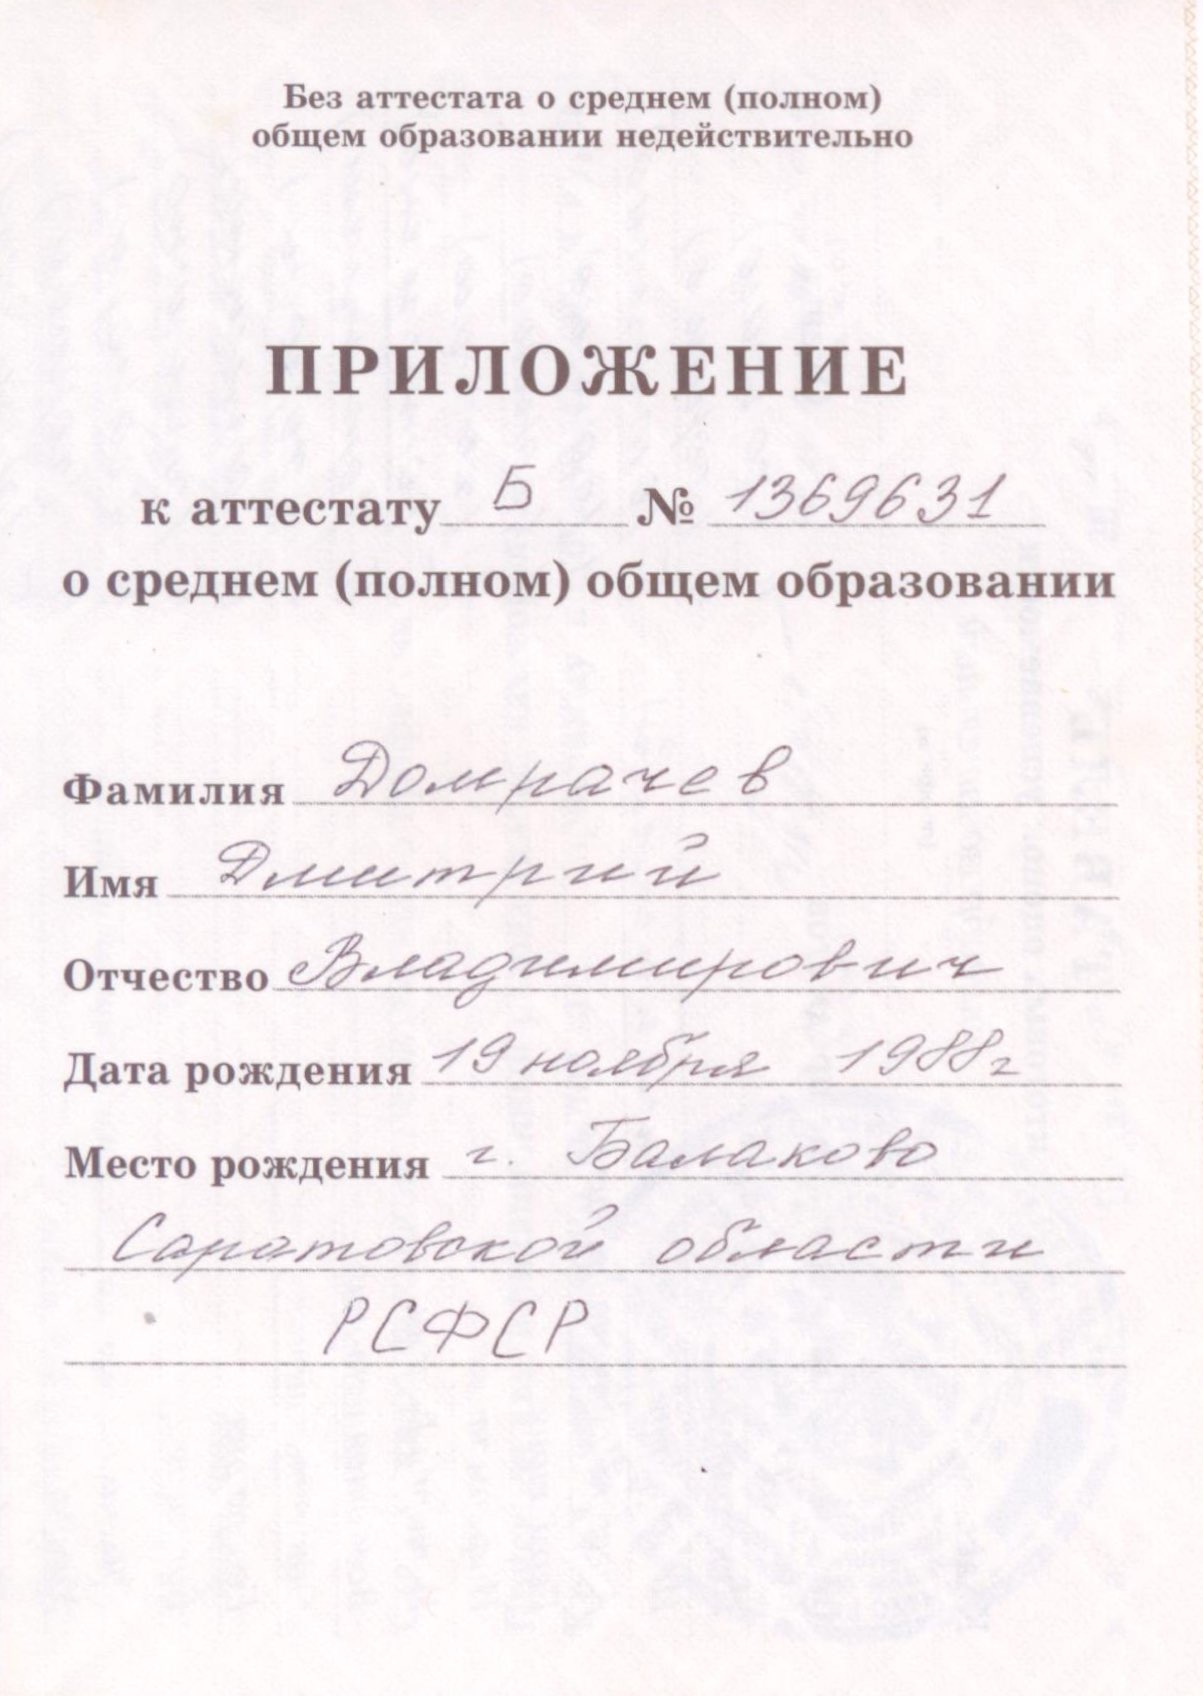 Без аттестата о среднем (полном)
общем образовании недействительно
ПРИЛОЖЕНИЕ
к аттестату Б № 1369631
о среднем (полном) общем образовании
Фамилия Домрачев
Имя Дмитрий
Отчество Владимирович
Дата рождения 19 ноября 1988 г
Место рождения г. Балаково
Саратовской области
РСФСР